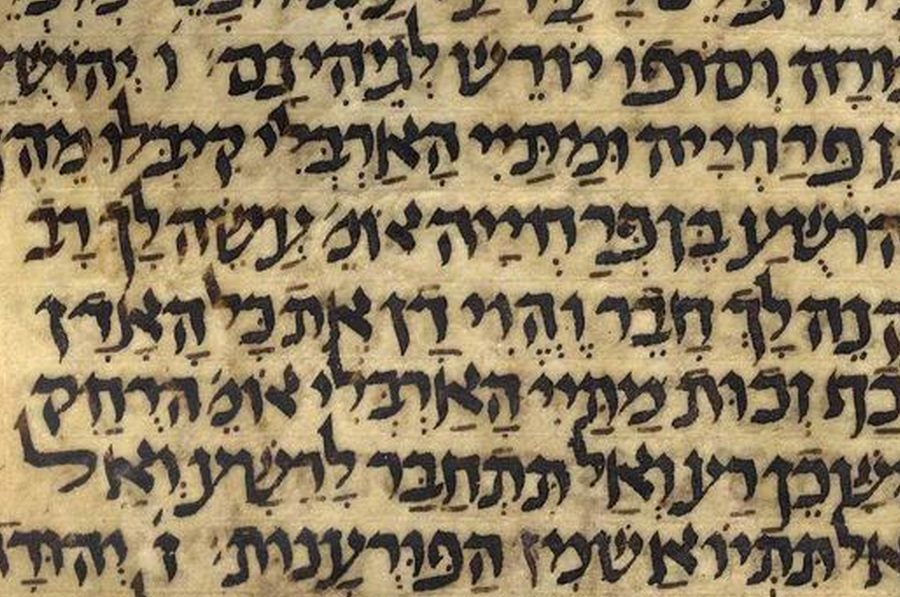 וסופו יורש לגיהינם ו
פרחייה ומיתיי הארבלי קיבלו
הושע בן פרחייה אומ׳ עשה לך רב
קנה לך חבר והוי דן את כל האדן
כף זכות מתיי הארבלי אומ׳ הרחק
משכן רע ואל תתחבר לרשע ואל
אל תתיואש מן הפורענות ז יהודה